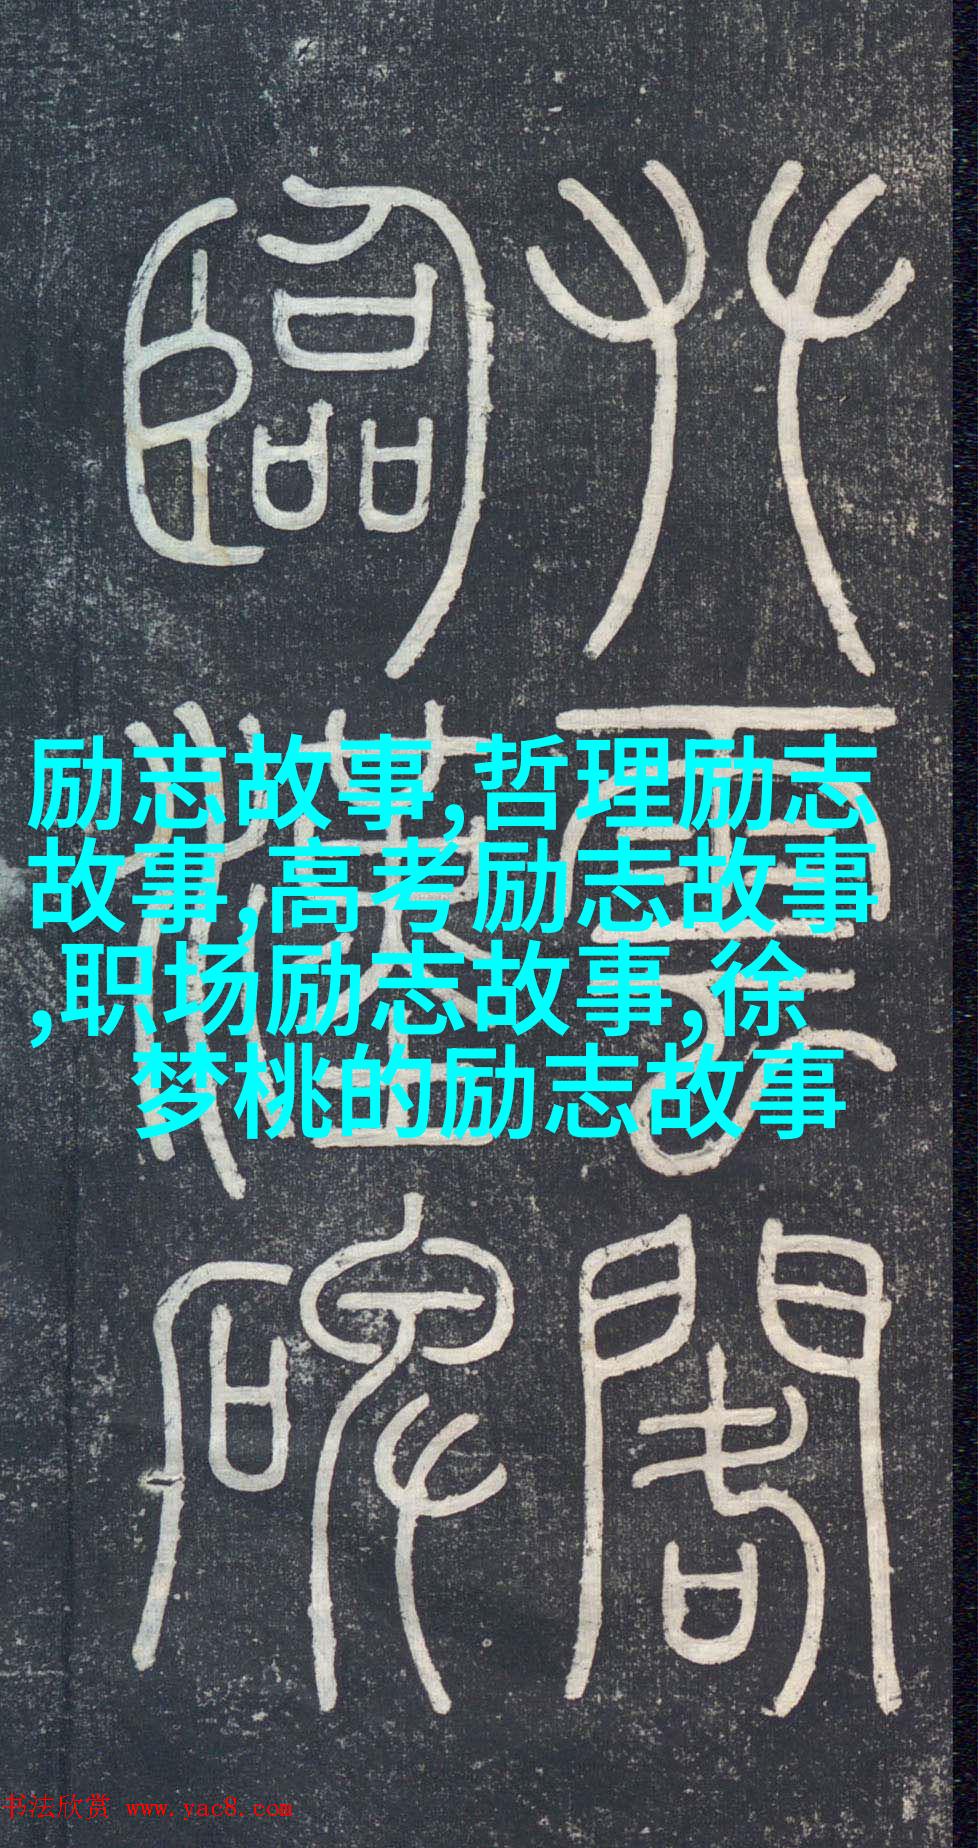 雲閣
臨漢碑
励志故事,哲理励志
故事,高考励志故事
,职场励志故事,徐
梦桃的励志故事
书法欣赏 www.yac8.com